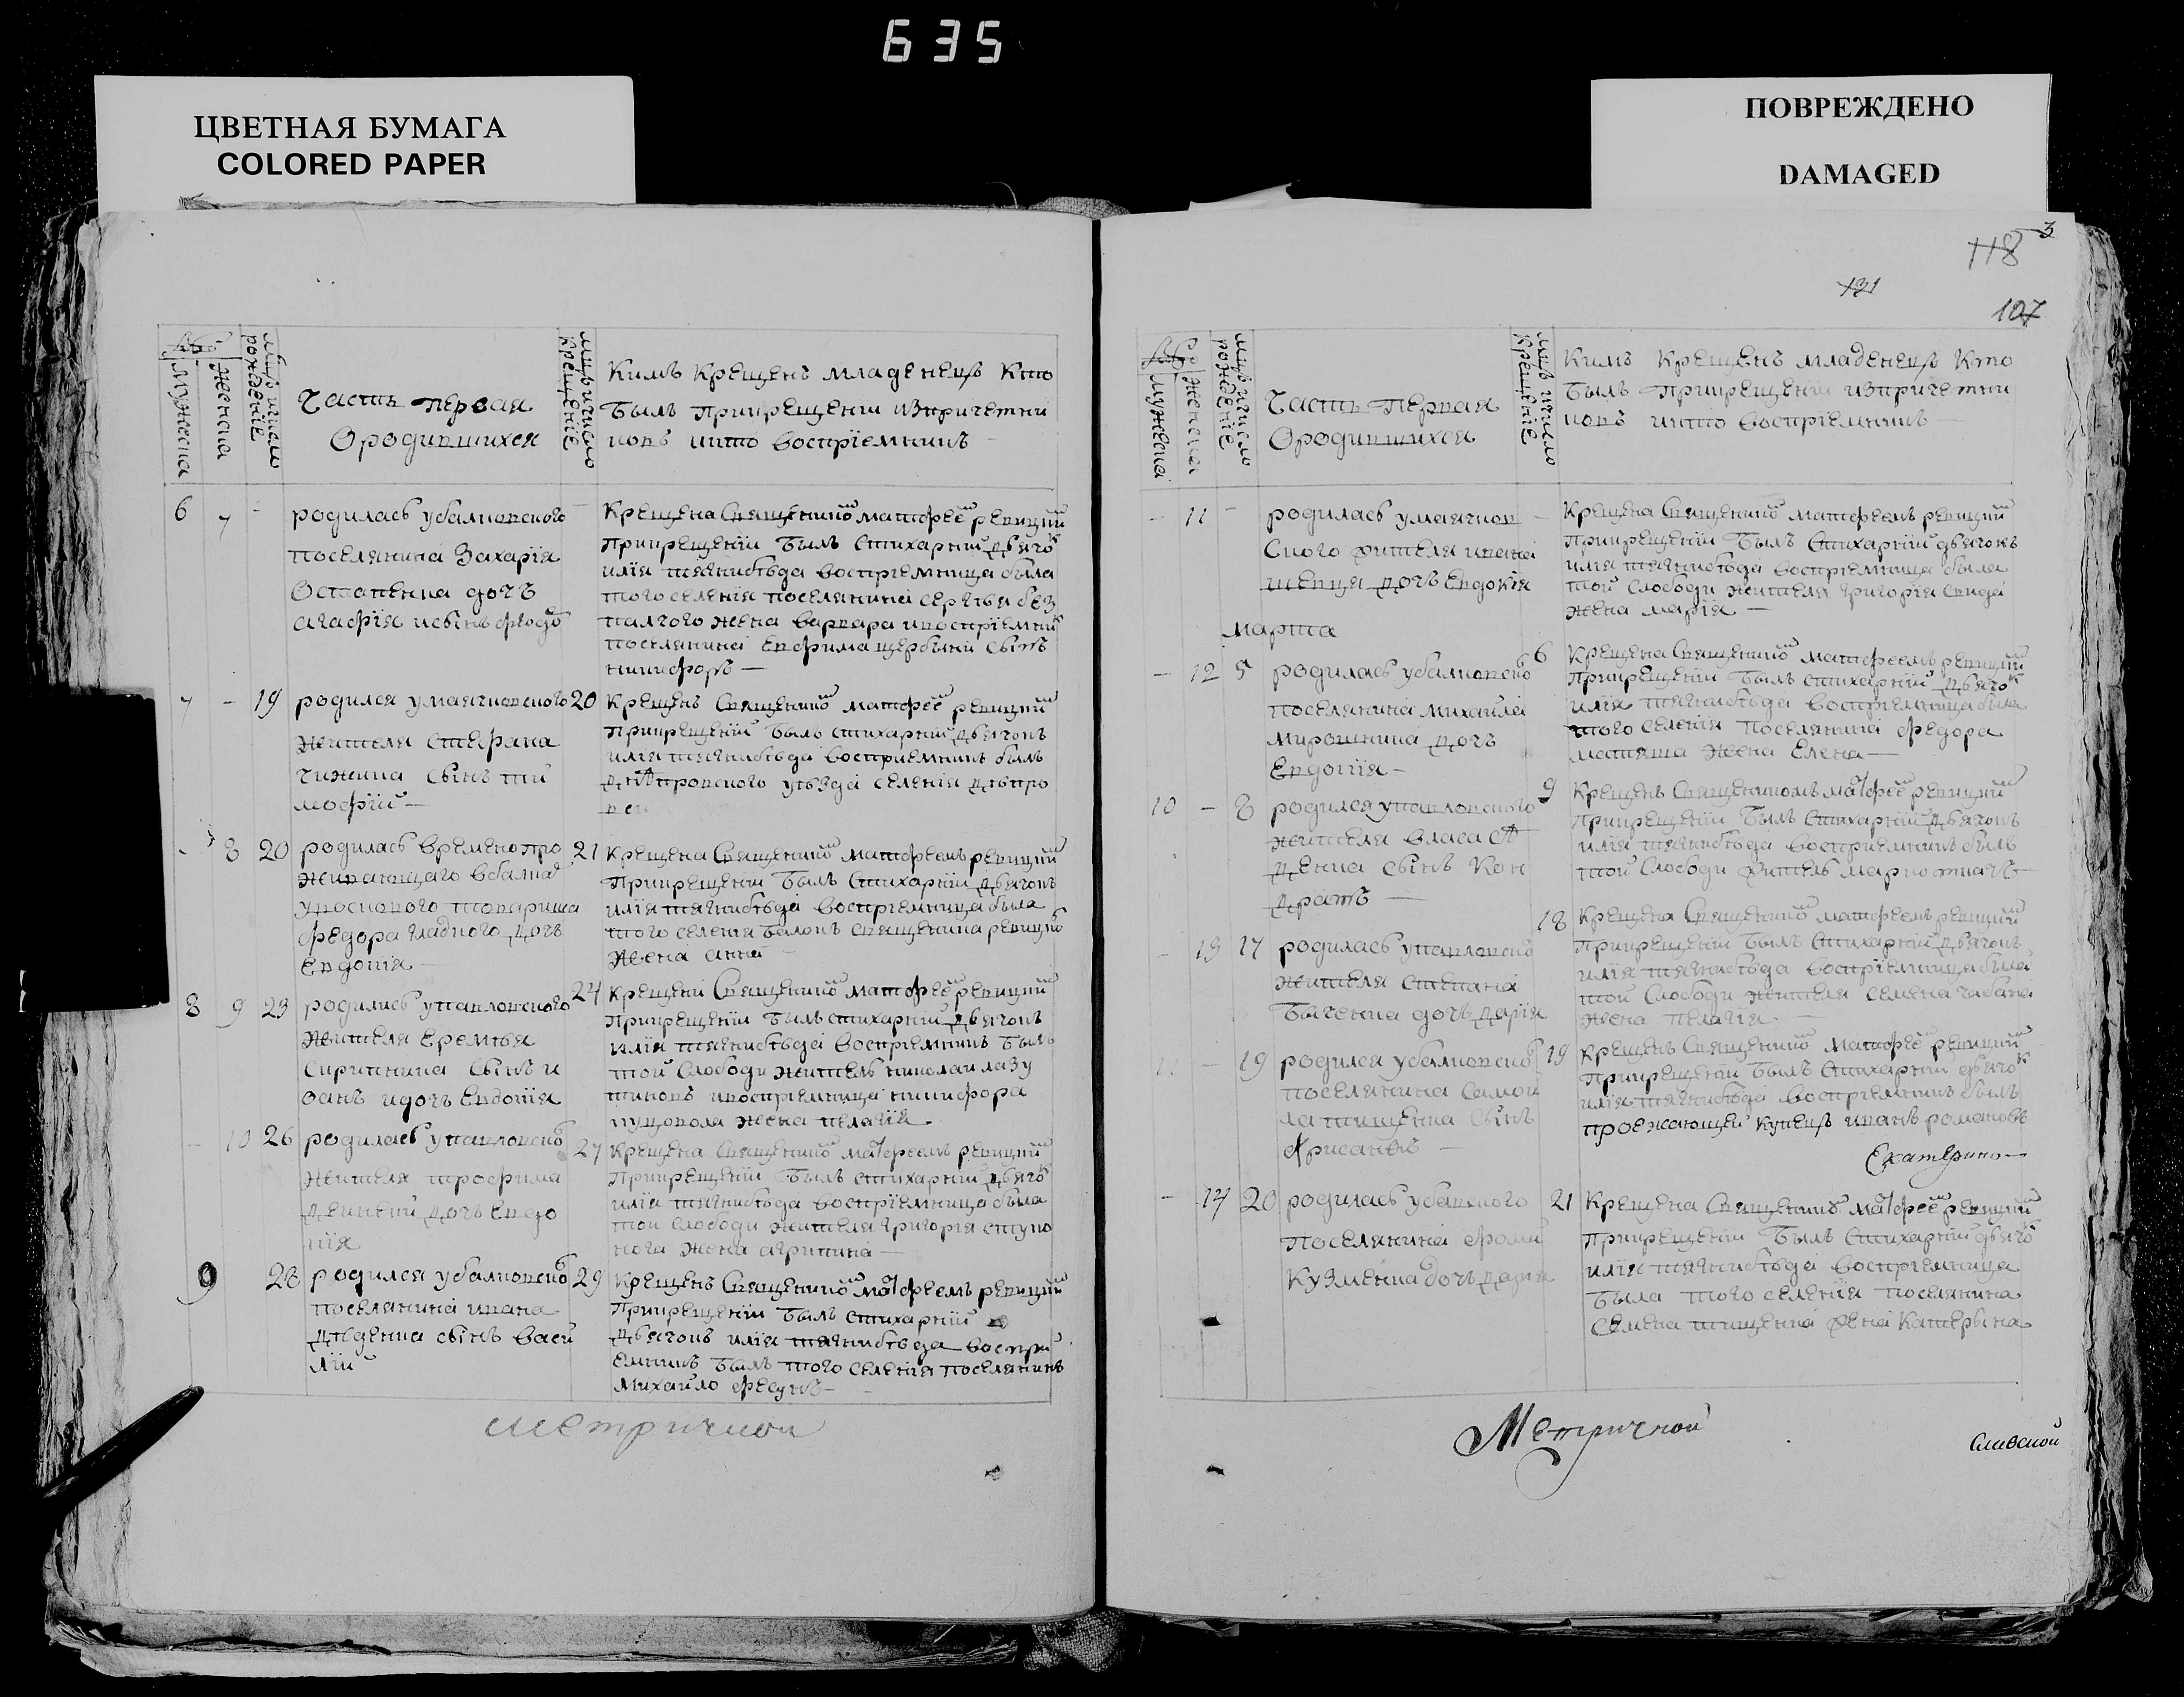 635
ЦВЕТНАЯ БУМАГА
COLORED PAPER
ПОВРЕЖДЕНО
DAMAGED
мужеска
женска
мцъ и число
рождениЕ
Часть первая
О родившихся
мцъ и число
крещениЕ
Кимъ крещенъ младенецъ кто
былъ при крещении из причетни
ковъ и кто восприемникъ
6 7 -
родилась у балковского
поселянина Захария
Остапенка дочъ
агафия и сынъ феодо
Крещена Священико матфее ревицкий
при крещении былъ стихарний дьячо
илия
восприемница была
того селения поселянина сергея без
палчого жена варвара и восприемни
поселянина ефрима щербини сынъ
никифоръ —
7 - 19
родился у маячковского
жителя стефана
чижика сынъ ти
мофий —
20
Крещенъ Священико матфее ревицкий
при крещении былъ стихарний дьячокъ
илия
восприемникъ былъ
днепровского уезда селения днепро
вск
- 8 20
родилась времено про
живающаго в балка
товариша
федора гладкого дочъ
Евдокия
21
Крещена Священико матфеемъ ревицкий
при крещении былъ стихарний дьячокъ
илия
восприемница была
того селения балокъ священика ревицко
жена анна
8 9 23
родились у павловского
жителя Еремея
скрипника сынъ и
оанъ и дочъ Евдокия
24
Крещени Священико матфее ревицкий
при крещении былъ стихарний дьячокъ
илия
восприемникъ былъ
той слободи житель николаи лазу
тинъ и восприемница никифора
жена пелагия
- 10 26
родилась у павловско
жителя трофима
дейнеки дочъ Евдо
кия
27
Крещена Священико матфеемъ ревицкий
при крещении былъ стихарний дьячо
илия
восприемница была
той слободи жителя григория ступо
нога жена агрипина —
9 28
родился у балковско
поселянина ивана
дедейка сынъ васи
лий
29
Крещенъ Священико матфеемъ ревицкий
при крещении былъ стихарний
дьячокъ илия
воспри
емникъ былъ того селения поселянинъ
михайло фесунъ —
метрической
3
118
121
107
мужеска
женска
мцъ и число
рождениЕ
Часть первая
О родившихся
мцъ и число
крещениЕ
Кимъ крещенъ младенецъ кто
былъ при крещении из причетни
ковъ и кто восприемникъ
- 11 -
родилась у маячков
ского жителя ивана
шевця дочъ Евдокия
Крещена Священико матфеемъ ревицкий
при крещении былъ стихарний дьячокъ
илия
восприемница была
той слободи жителя григория
жена мария —
марта
- 12 5
родилась у балковско
поселянина михайла
мирошника дочъ
Евдокия —
6
Крещена Священико матфеемъ ревицкий
при крещении былъ стихарний дьячо
илия
восприемница была
того селения поселянина федора
матяша жена Елена —
10 - 8
родился у павловского
жителя власа
денка сынъ Кон
дратъ —
9
Крещенъ Священикомъ матфее ревицкий
при крещении былъ стихарний дьячокъ
илия
восприемникъ былъ
той слободи житель марко ткачъ
- 13 17
родилась у павловско
жителя степана
биченка дочъ дария
18
Крещена Священико матфеемъ ревицкий
при крещении былъ стихарний дьячокъ
илия
восприемница была
той слободи жителя семена чабана
жена пелагия —
- 19
родился у балковско
поселянина самои
ла тищенка сынъ
хрисанфъ —
19
Крещенъ Священико матфее ревицкий
при крещении былъ стихарний дьячо
илия
восприемникъ былъ
проежающей купецъ иванъ романовъ
Екатерино —
- 14 20
родилась у
поселянина фоми
кузменка дочъ дария
21
Крещена Священикъ матфее ревицкий
при крещении былъ стихарний дьячо
илия
восприемница
была того селения поселянина
семена тищенка жена Катерына
Метрической
славской